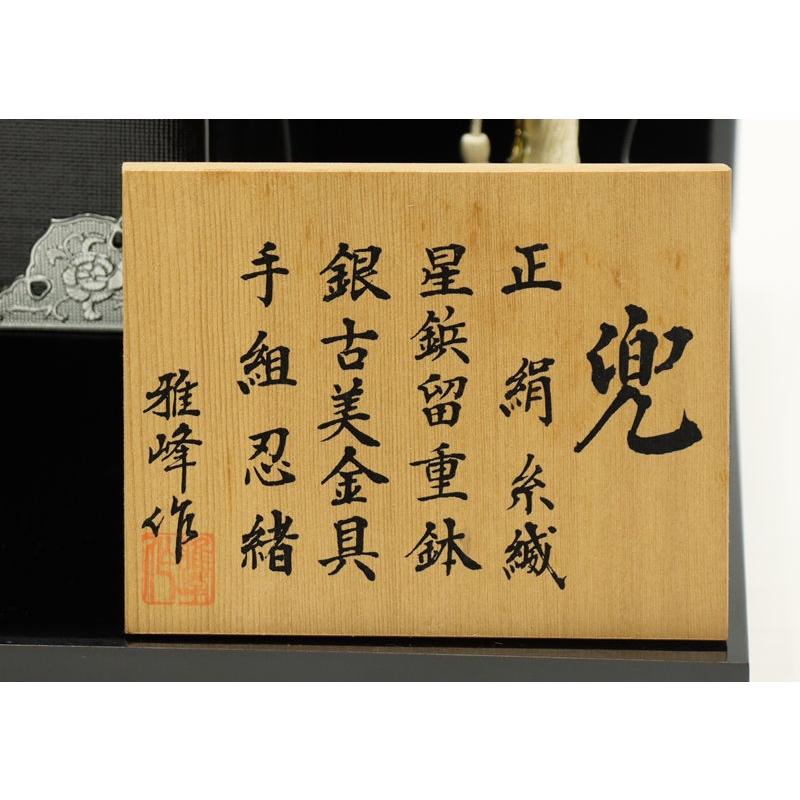 兜
正絹糸縅
星鋲留重鉢
銀古美金具
手組忍緒
雅峰作